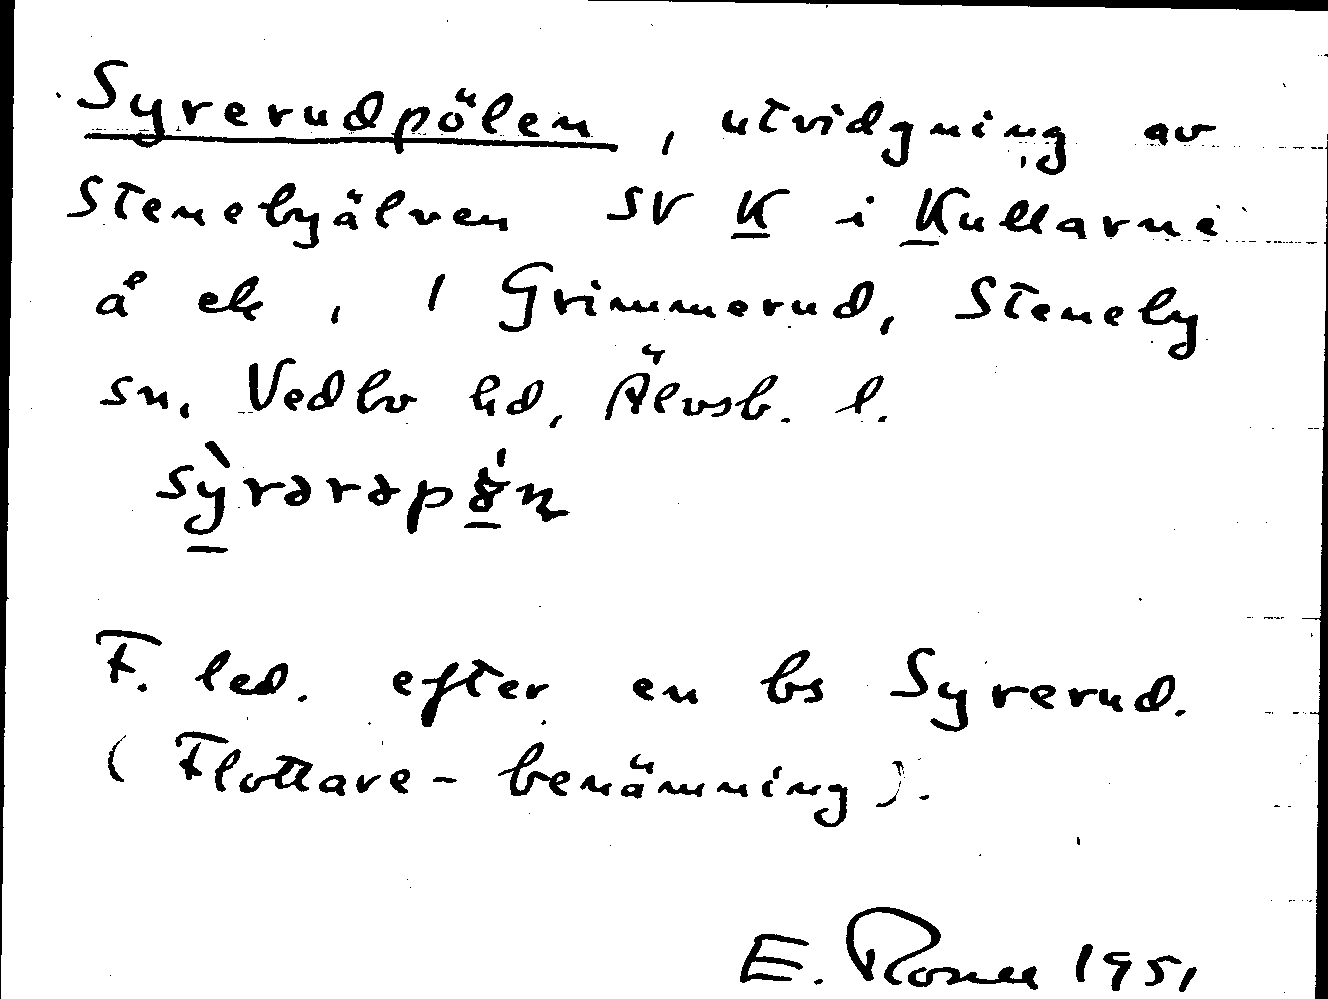 Syrerudpölen, utvidgning av
Stenebyälven SV K i Kullarne
å ek, / Grimmerud, Steneby
sn, Vedbo hd, Älvsb. l.
F. led. efter en bs Syrerud.
(Flottare-benämning).
E. 1951